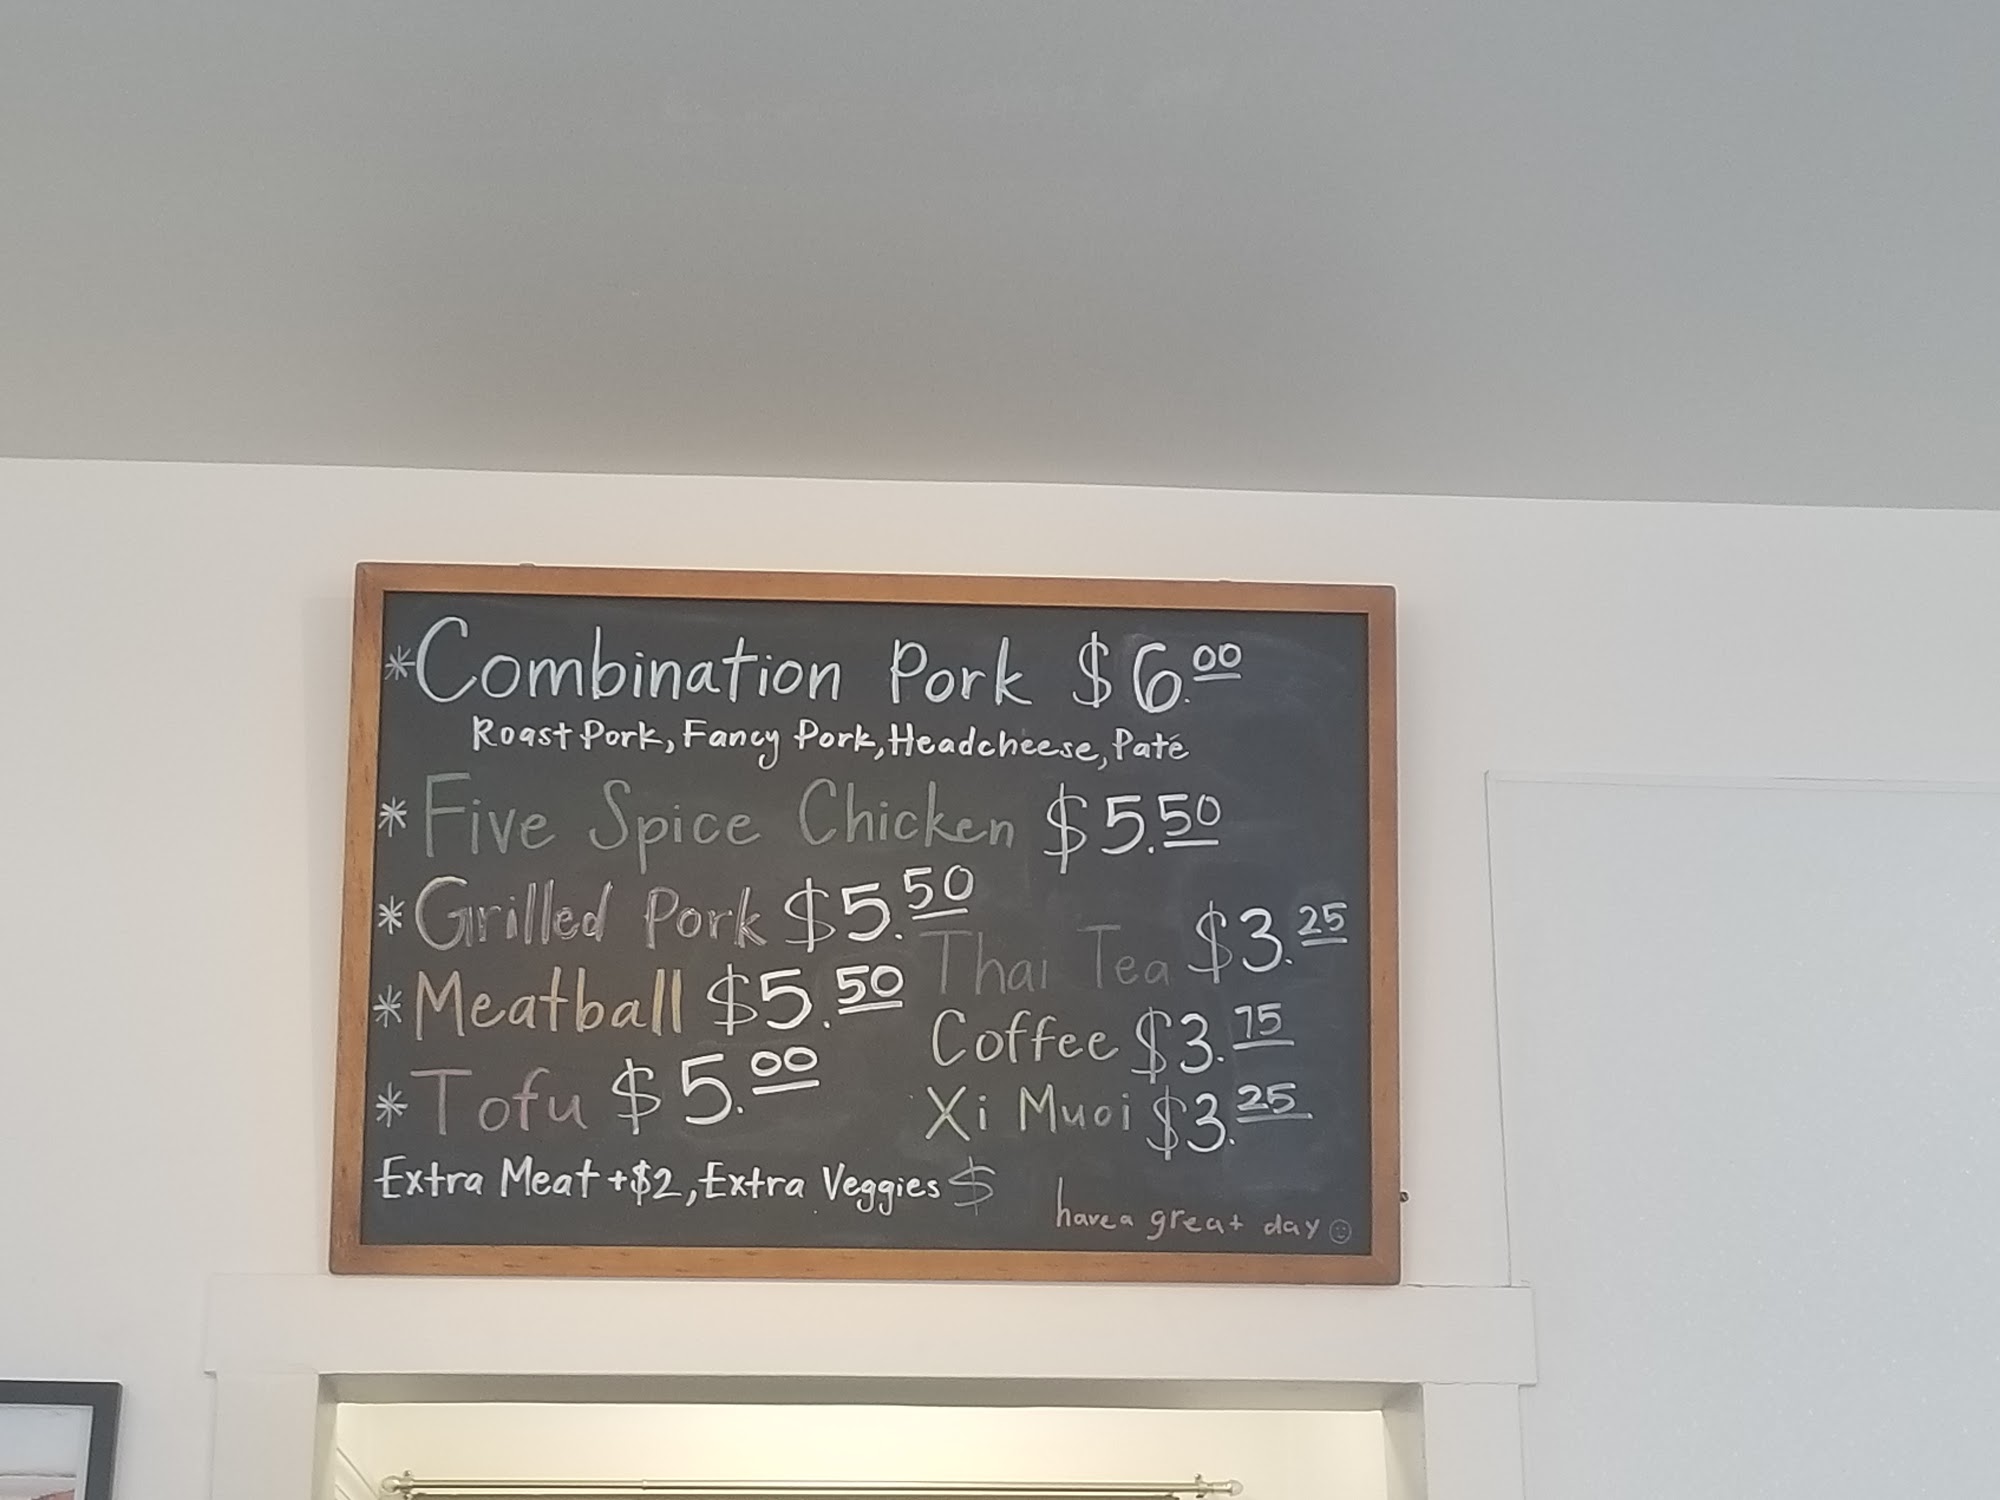 *Combination Pork $6.00
Roast Pork, Fancy Pork, Headcheese, Paté
* Five Spice Chicken $5.50
* Grilled Pork $5.50
* Meatball $5.50
* Tofu $5.00
Thai Tea $3.25
Coffee $3.75
Xi Muoi $3.25
Extra Meat +$2, Extra Veggies $
have a great day ☺